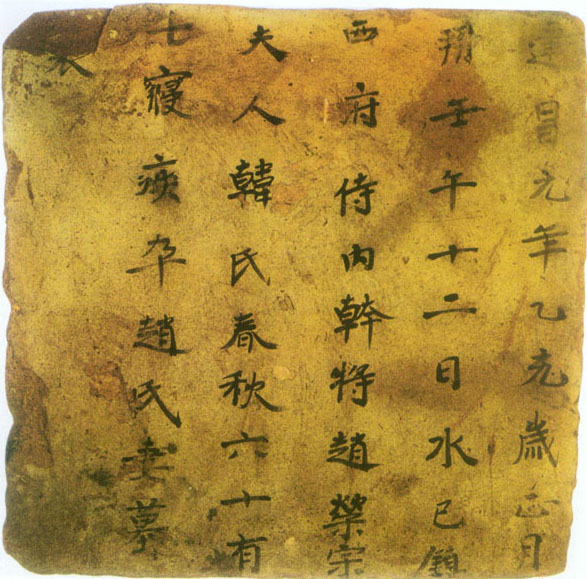 建昌元年乙亥歲正月
朔壬午十二日水巳鎮
西府侍內幹將趙榮宗
夫人韓氏春秋六十有
七寢疾卒趙氏妻墓
表